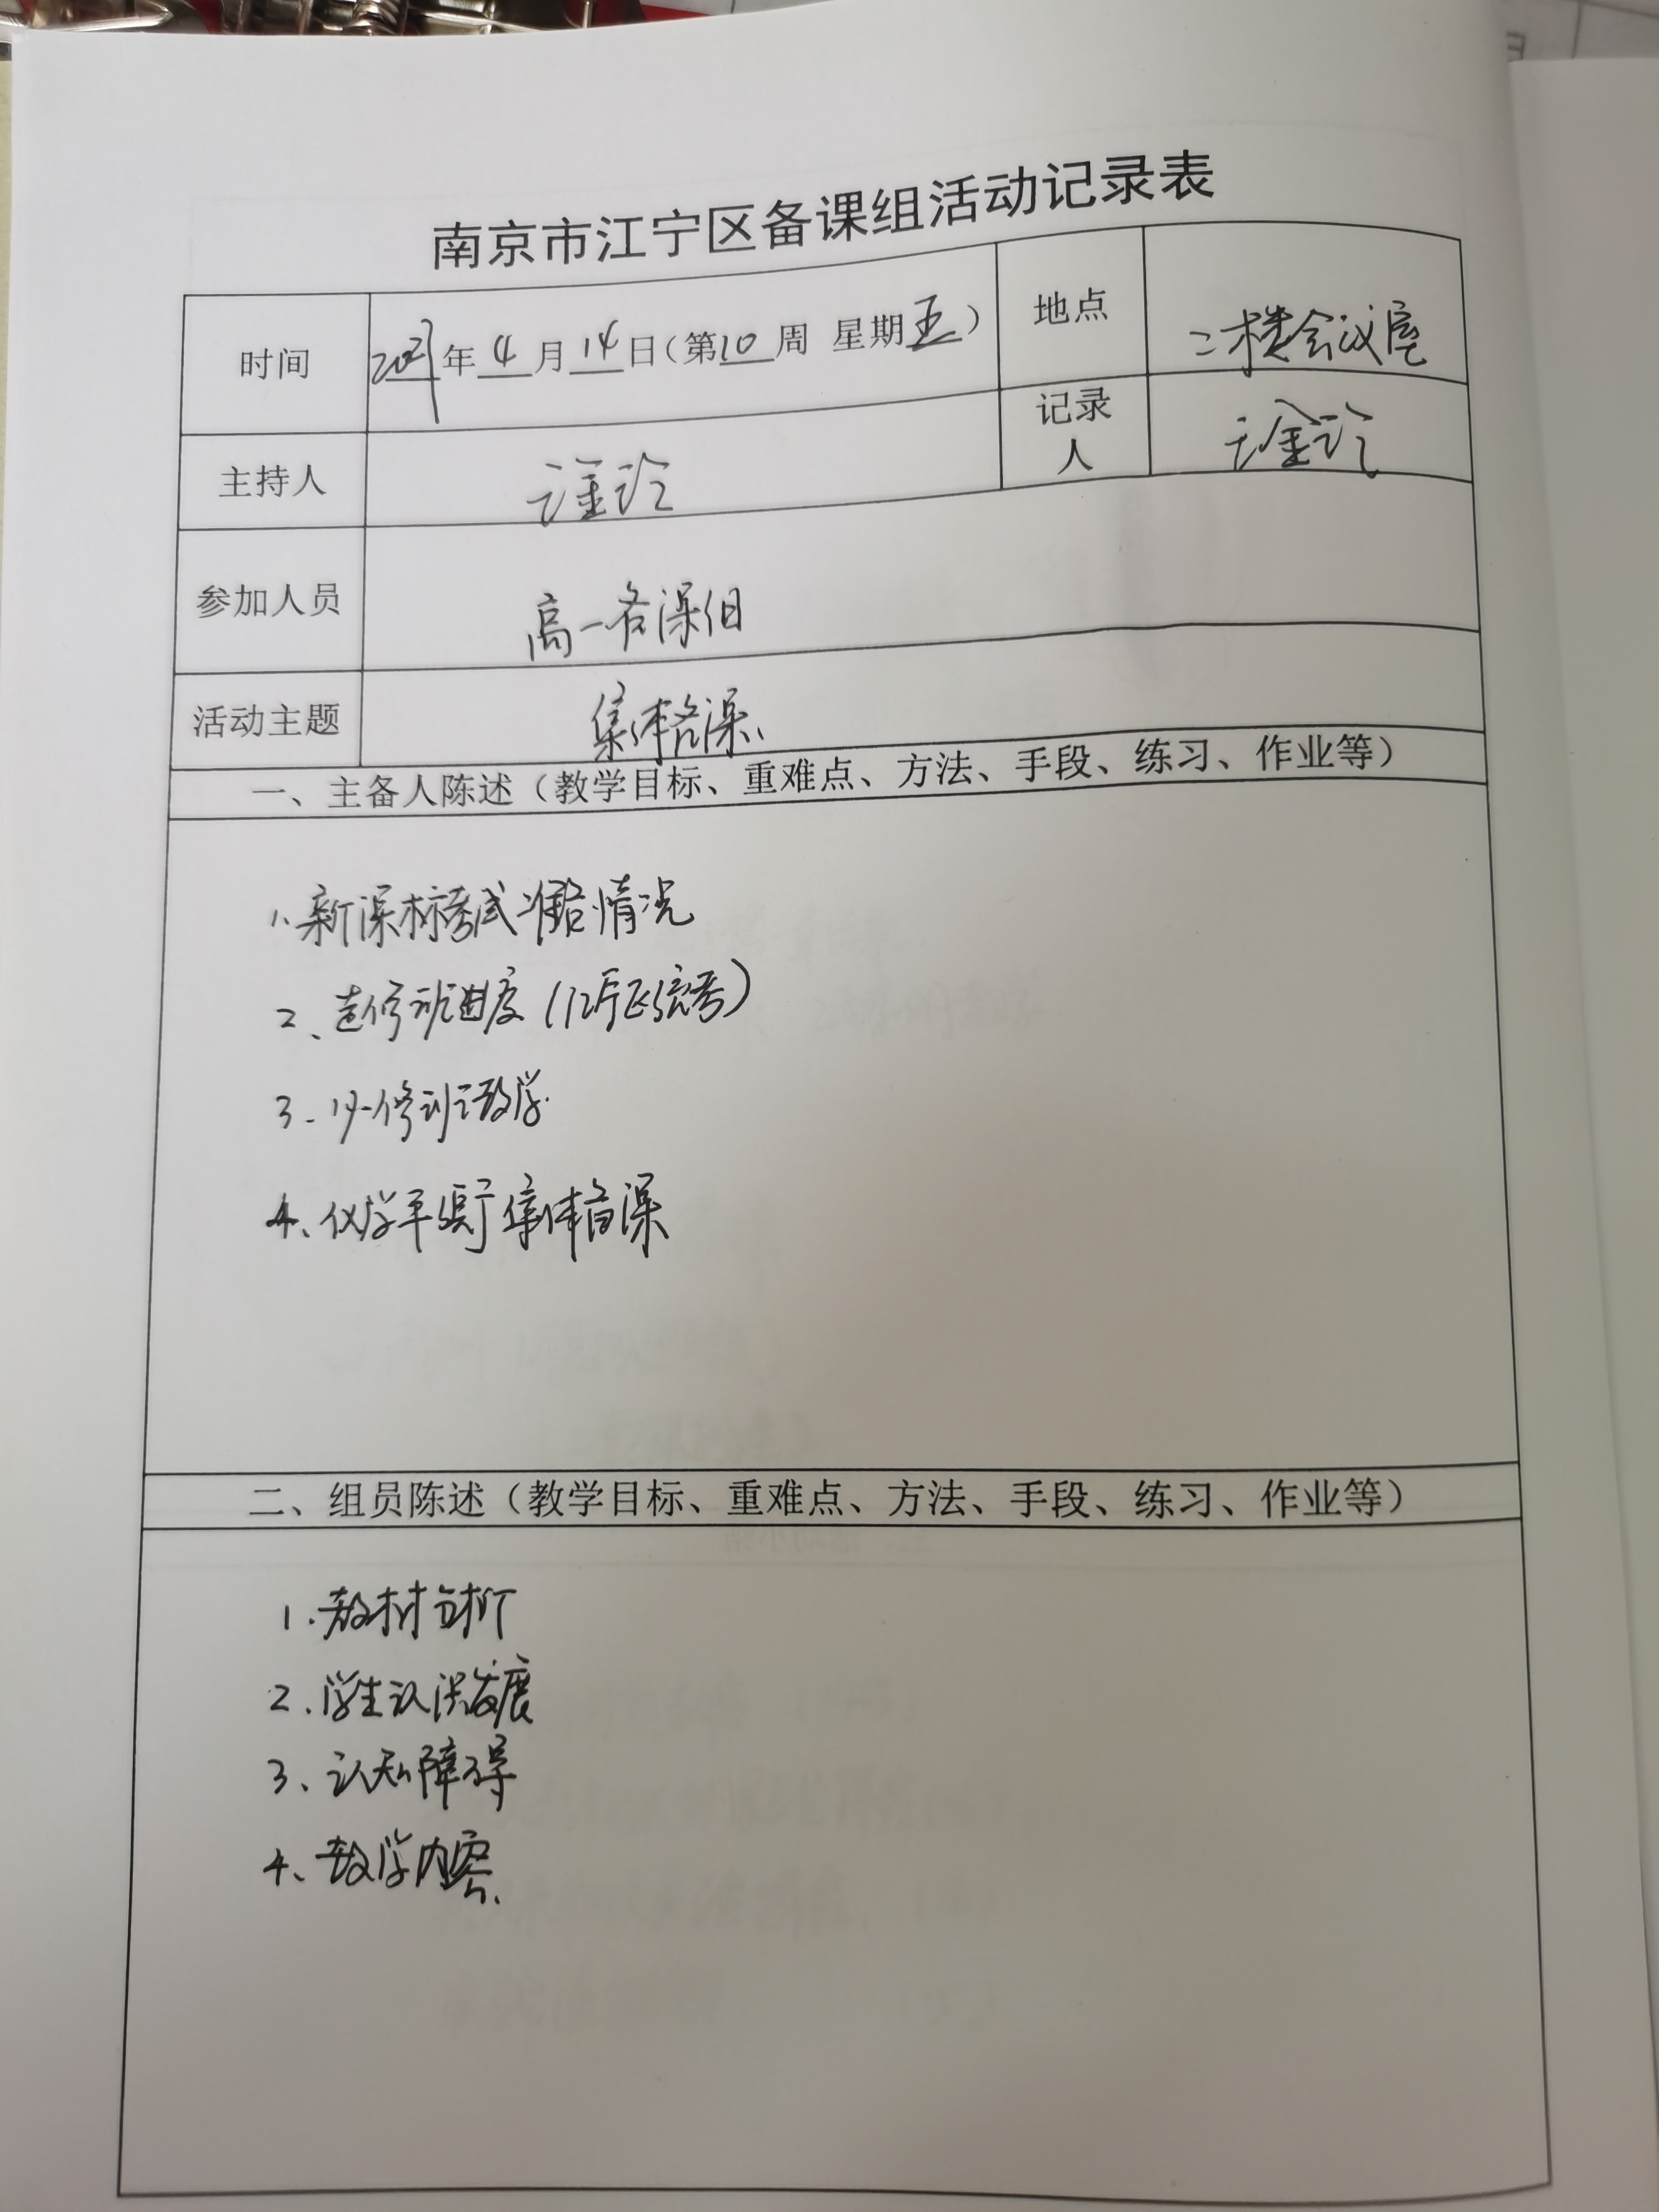 南京市江宁区备课组活动记录表
时间 年4月14日(第10周 星期五) 地点 二楼会议室
主持人 记录人
参加人员 高一备课组
活动主题 集体备课
一、主备人陈述(教学目标、重难点、方法、手段、练习、作业等)
1、新课标考试准备情况
2、选修班进度(江宁区统考)
3、必修班教学
4、化学平衡集体备课
二、组员陈述(教学目标、重难点、方法、手段、练习、作业等)
1.教材分析
2.学生认识发展
3、认知障碍
4、教学内容